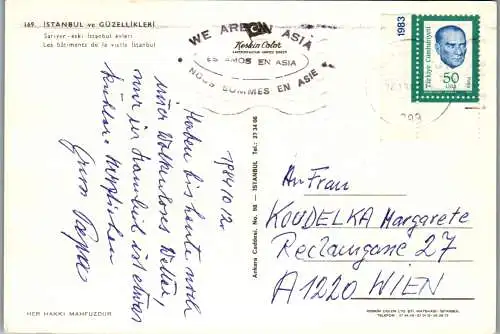 169. İSTANBUL ve GÜZELLİKLERİ
Sarıyer-eski İstanbul evleri
Les bâtiments de la vielle İstanbul
WE ARE IN ASIA
Keskin Color
ESTAMOS EN ASIA
NOUS SOMMES EN ASIE
1983
Türkiye Cumhuriyeti
50
LİRA
1984 10 12.
Haben bis heute noch
immer Wolkenloses Wetter,
nur in Istanbul ist etwas
kühler. Herzlichen
Gruss Papa
Ankara Caddesi, No. 98 — İSTANBUL Tel.: 27 34 06
An Frau
KOUDELKA Margarete
Reclamgasse 27
A 1220 WIEN
HER HAKKI MAHFUZDUR
KESKİN COLOR LTD. ŞTİ. MATBAASI - İSTANBUL